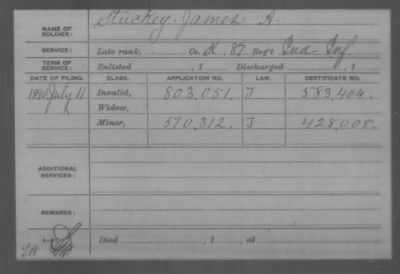 NAME OF SOLDIER: Stuckey James A.
SERVICE: Late rank, Co. K, 87 Reg't Ind Inf
TERM OF SERVICE: Enlisted , 1 Discharged , 1
DATE OF FILING. CLASS. APPLICATION NO. LAW. CERTIFICATE NO.
1890 July 11 Invalid, 803,051. J 583,404.
Widow,
Minor, 570,312. J 428,008.
ADDITIONAL SERVICES:
REMARKS:
Died , 1 , at